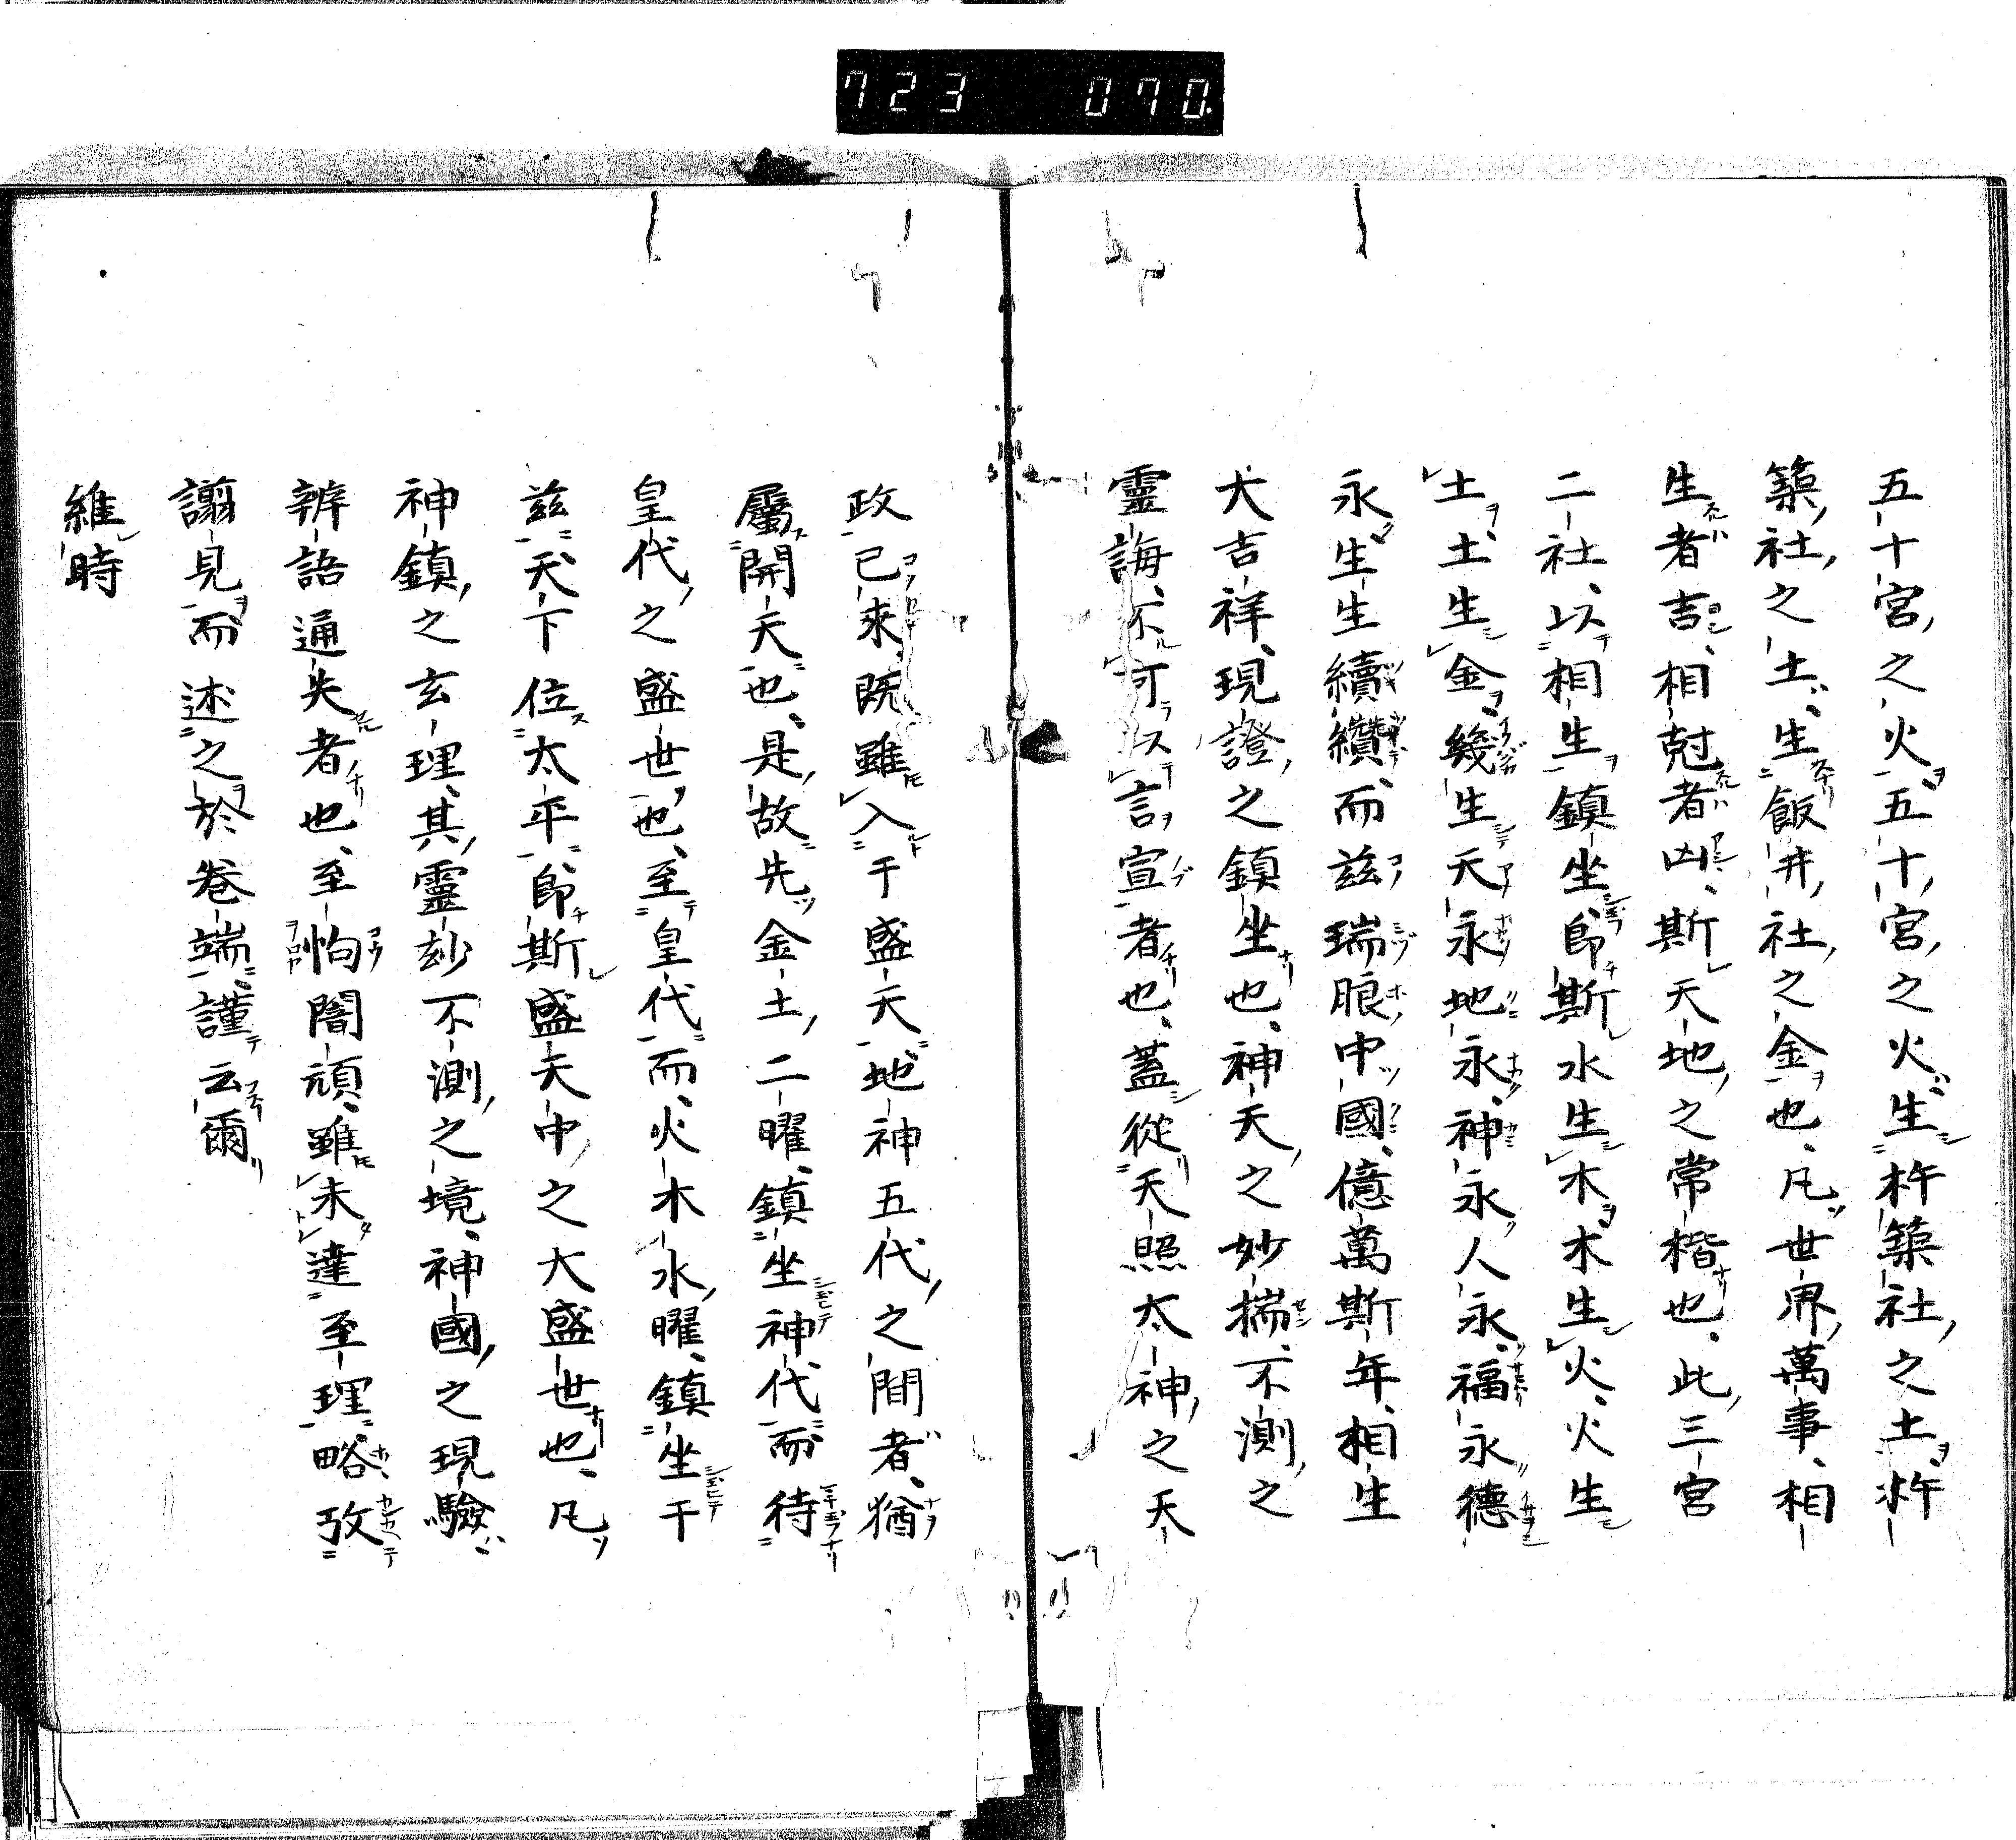 723 070.
五十宮之火五十宮之火生杵築社之土杵
築社之土生飯井社之金也凡世界萬事相
生者吉相尅者凶斯天地之常楷也此三宮
二社以相生鎮坐即斯水生木木生火火生
土土生金幾生天永地永神永人永福永德
永生生續纘而茲瑞眼中國億萬斯年相生
大吉祥現證之鎮坐也神天之妙揣不測之
靈誨不可以言宣者也蓋從天照太神之天
政已來既雖入于盛天地神五代之間者猶
屬開天也是故先金土二曜鎮坐神代而待
皇代之盛世也至皇代而火木水曜鎮坐于
茲天下位太平即斯盛天中之大盛世也凡
神鎮之玄理其靈玅不測之境神國之現驗
辨語通失者也至怐闇頑雖未達至理略攷
謭見而述之於卷端謹云爾
維時